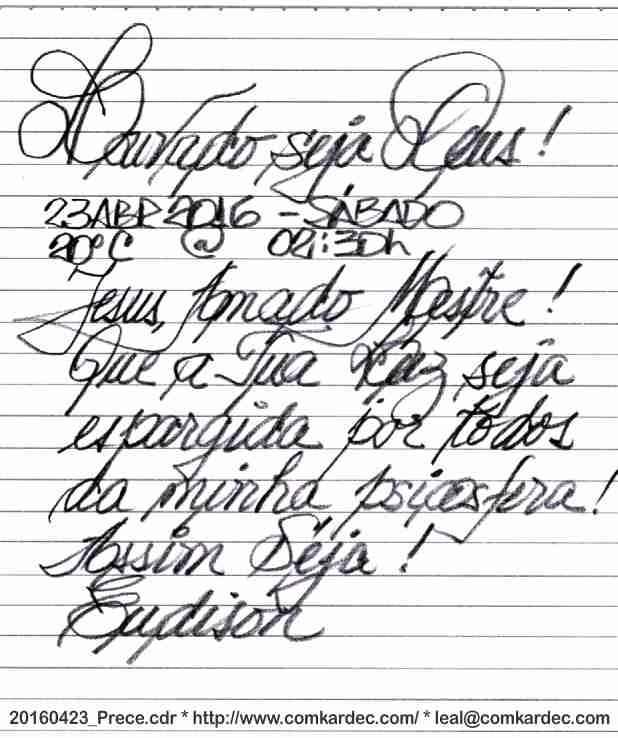 Louvado seja Deus!
23ABR2016 - SÁBADO
20°C @ 02:30h
Jesus, Amado Mestre!
Que a Tua Paz seja
espargida por todos
da minha psicosfera!
Assim Seja!
Eudison
20160423_Prece.cdr * http://www.comkardec.com/ * leal@comkardec.com